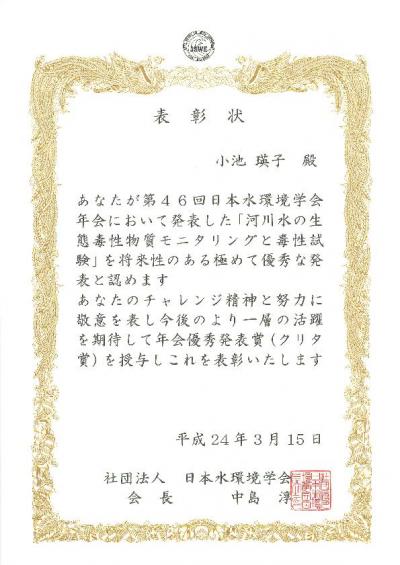 JSWE
表彰状
小池 瑛子 殿
あなたが第46回日本水環境学会
年会において発表した「河川水の生
態毒性物質モニタリングと毒性試
験」を将来性のある極めて優秀な発
表と認めます
あなたのチャレンジ精神と努力に
敬意を表し今後のより一層の活躍
を期待して年会優秀発表賞(クリタ
賞)を授与しこれを表彰いたします
平成24年3月15日
社団法人 日本水環境学会
会長 中島 淳